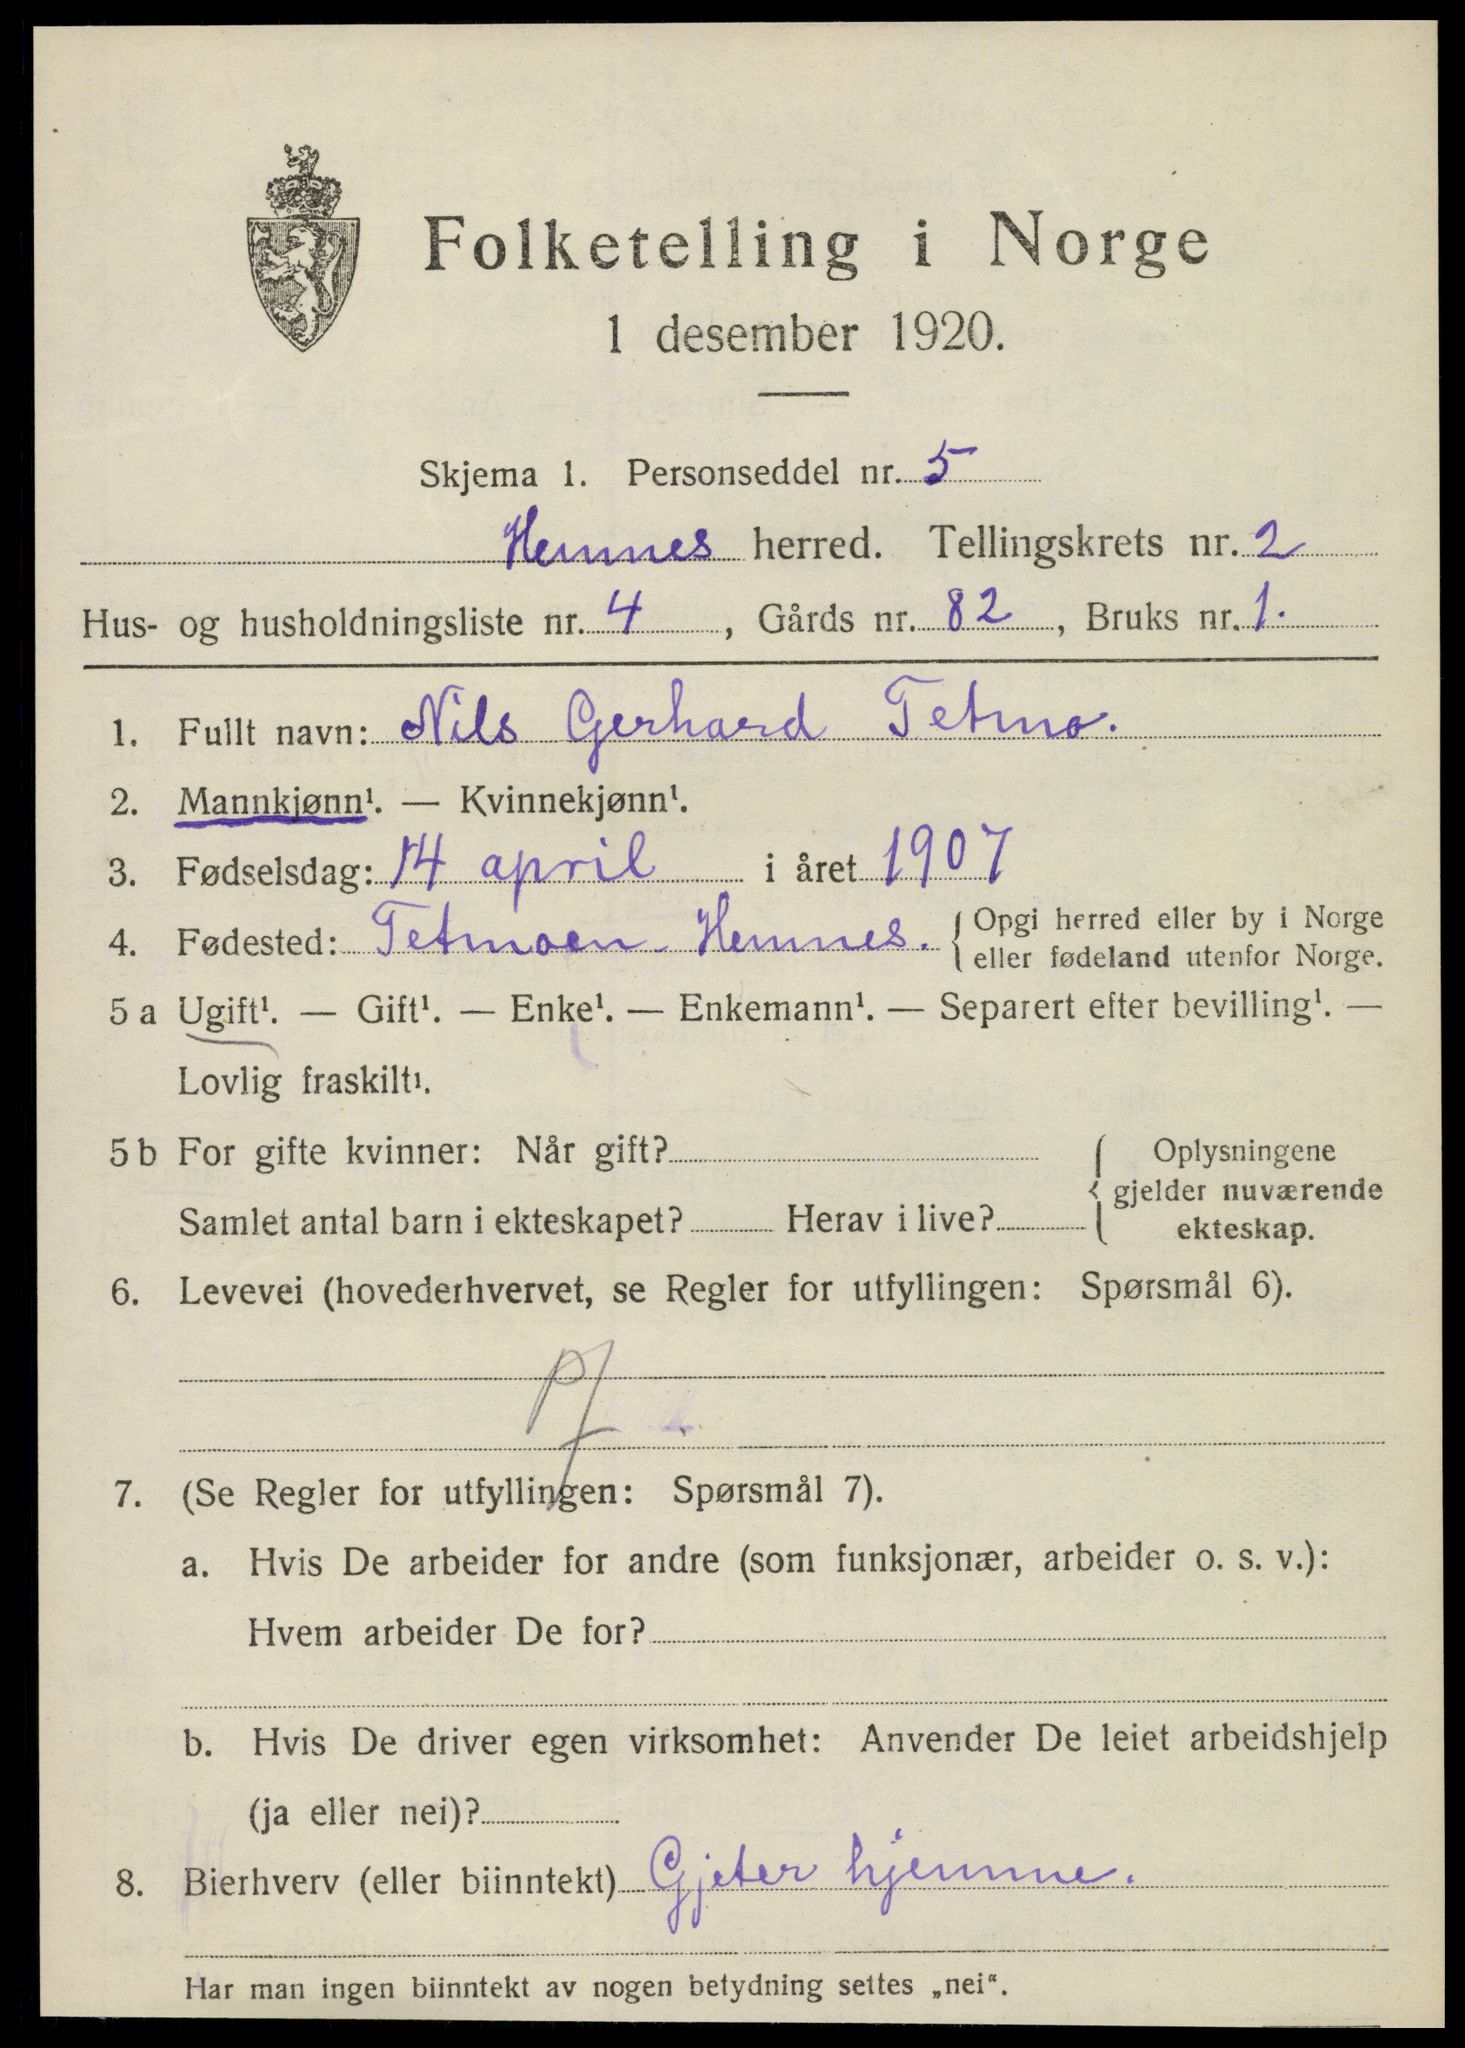 Folketelling i Norge
1 desember 1920.
Skjema 1. Personseddel nr. 5
Hemnes herred. Tellingskrets nr. 2
Hus- og husholdningsliste nr. 4, Gårds nr. 82, Bruks nr. 1.
1. Fullt navn: Nils Gerhard Tetmo.
2. Mannkjønn¹. — Kvinnekjønn¹.
3. Fødselsdag: 14 april i året 1907
4. Fødested: Tetmoen Hemnes. { Opgi herred eller by i Norge
eller fødeland utenfor Norge.
5 a Ugift¹. — Gift¹. — Enke¹. — Enkemann¹. — Separert efter bevilling¹. —
Lovlig fraskilt¹.
5 b For gifte kvinner: Når gift?
Samlet antal barn i ekteskapet? Herav i live?
{ Oplysningene
gjelder nuværende
ekteskap.
6. Levevei (hovederhvervet, se Regler for utfyllingen: Spørsmål 6).
pf
7. (Se Regler for utfyllingen: Spørsmål 7).
a. Hvis De arbeider for andre (som funksjonær, arbeider o. s. v.):
Hvem arbeider De for?
b. Hvis De driver egen virksomhet: Anvender De leiet arbeidshjelp
(ja eller nei)?
8. Bierhverv (eller biinntekt) Gjeter hjemme.
Har man ingen biinntekt av nogen betydning settes „nei“.